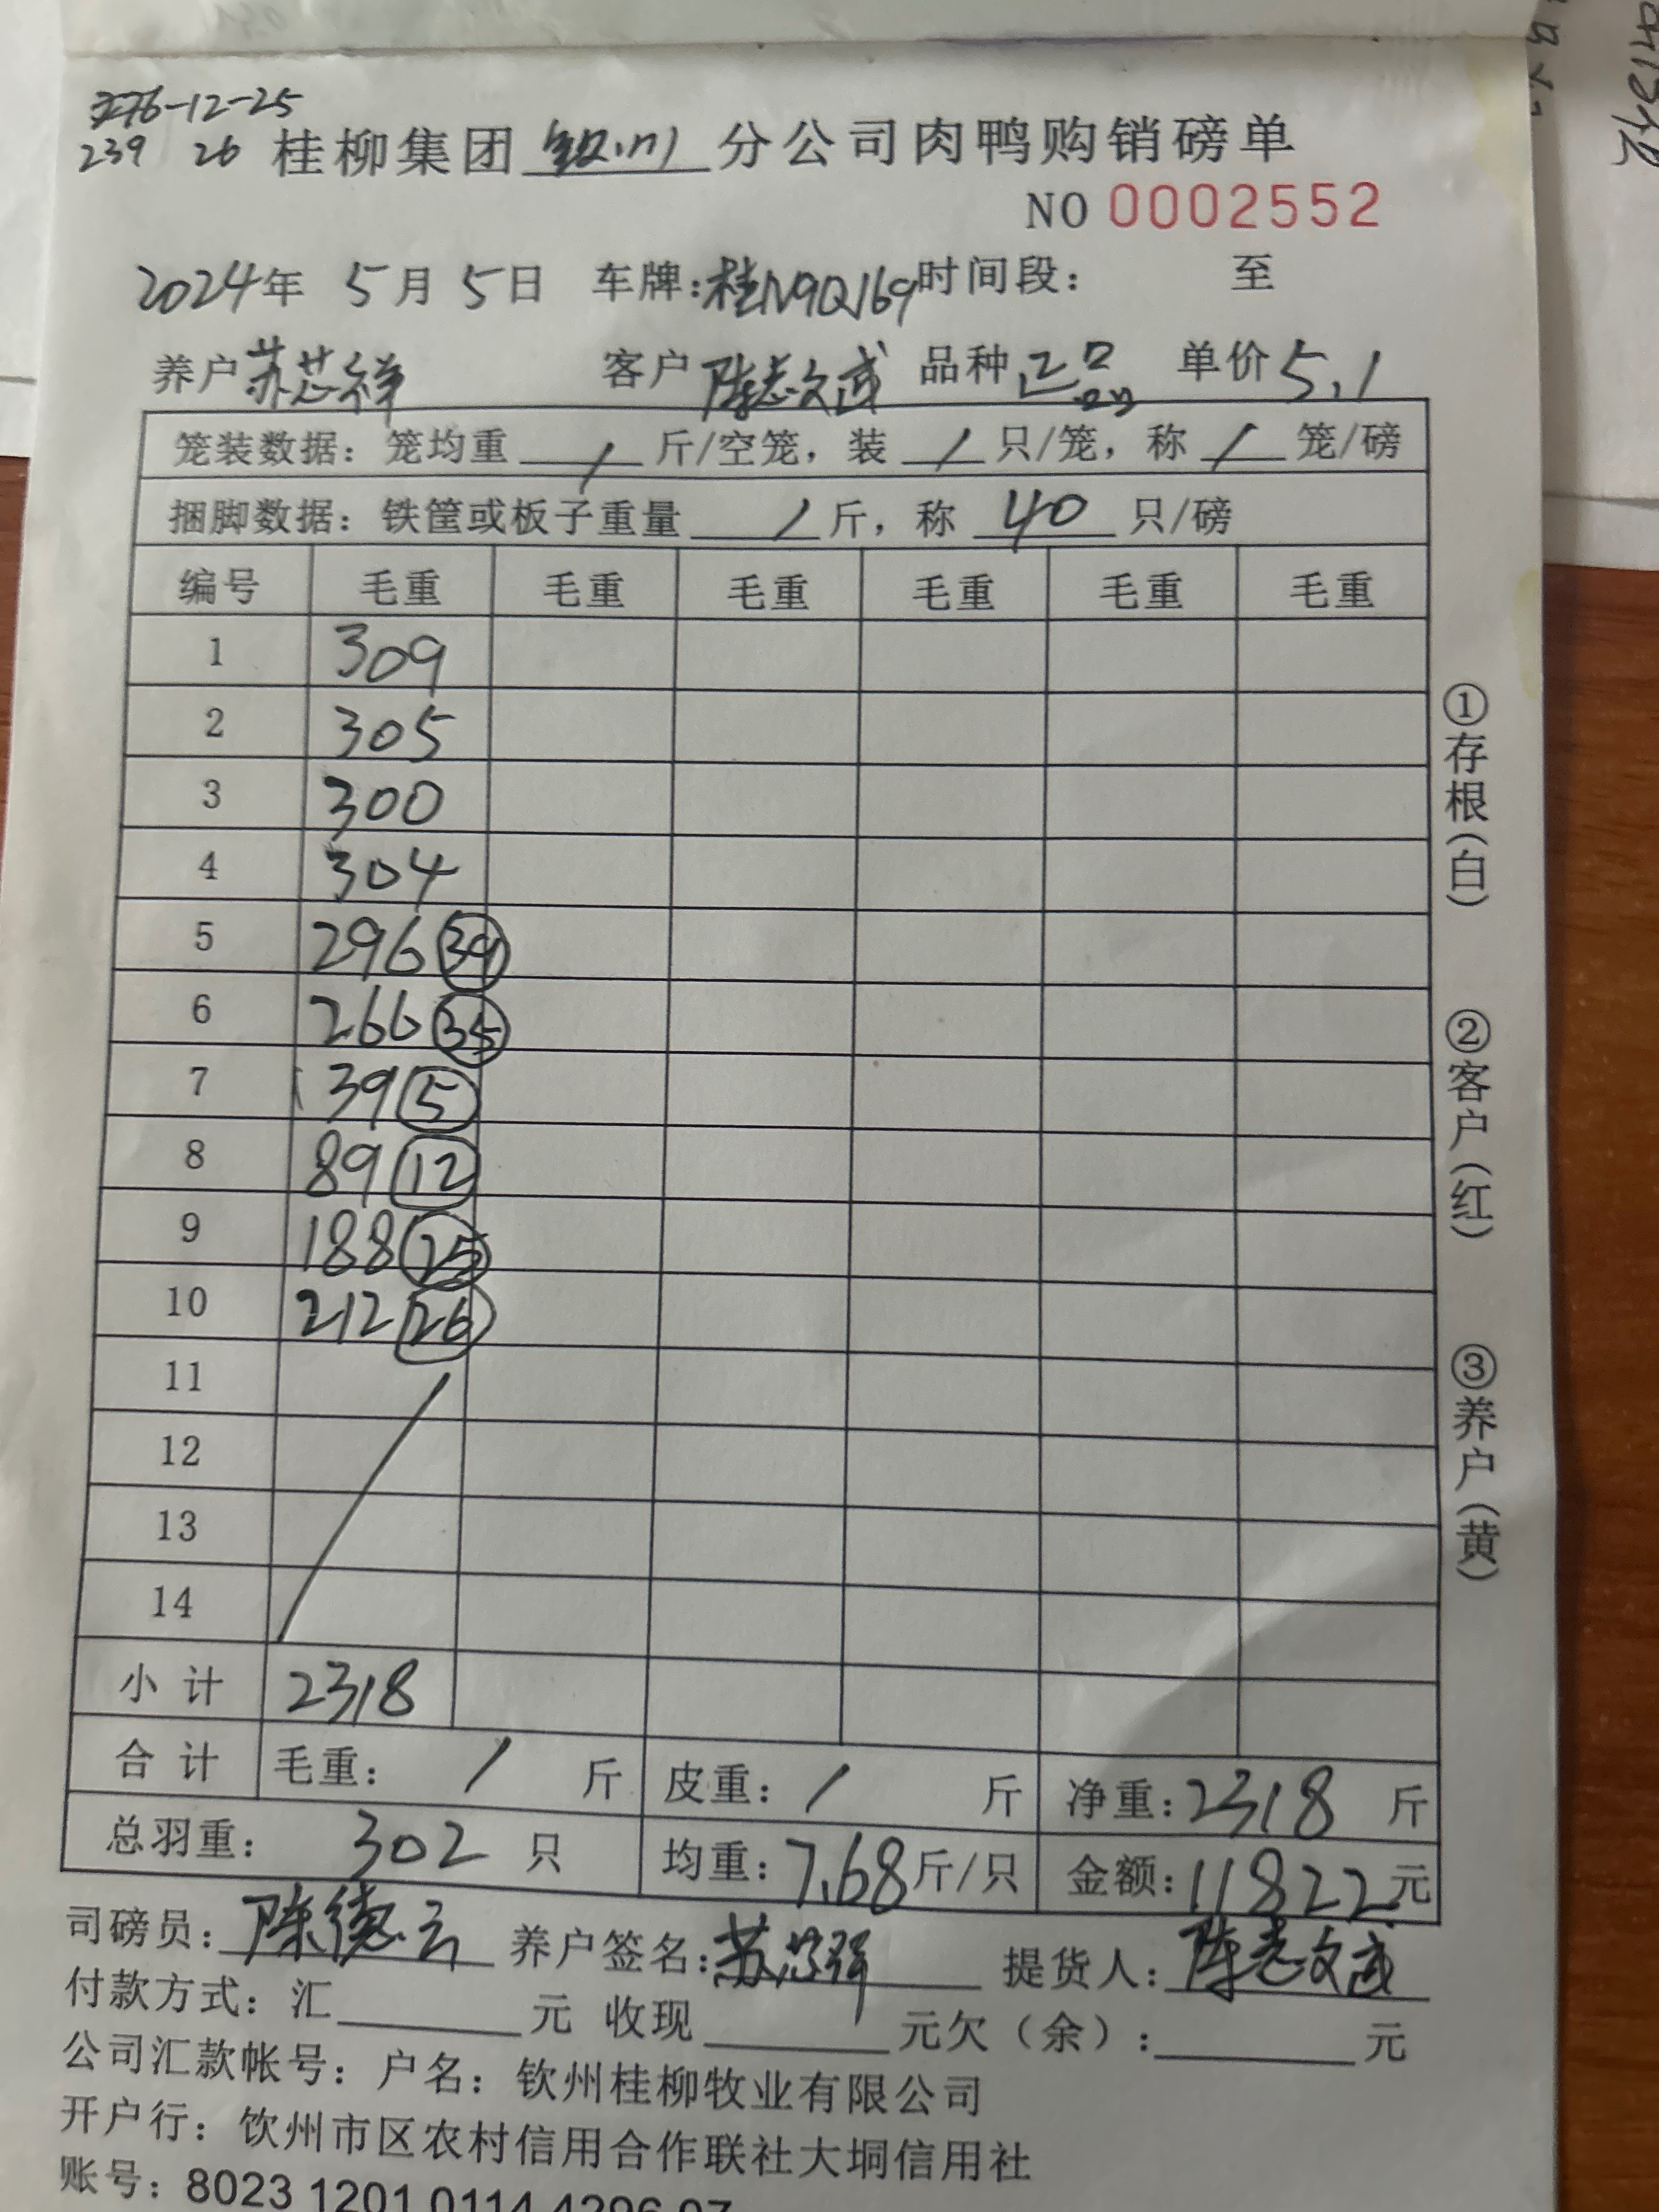 276-12-25
239 26 桂柳集团 钦州 分公司肉鸭购销磅单
NO 0002552
2024年 5月5日 车牌:桂N9Q169 时间段: 至
养户 苏芯祥 客户 陈志文武 品种 正品 单价 5.1
笼装数据:笼均重 / 斤/空笼,装 / 只/笼,称 / 笼/磅
捆脚数据:铁筐或板子重量 / 斤,称 40 只/磅
编号 毛重 毛重 毛重 毛重 毛重 毛重
1 309
2 305
3 300
4 304
5 296 39
6 266 35
7 39 5
8 89 12
9 188 25
10 212 26
11
12
13
14
小计 2318
合计 毛重: / 斤 皮重: / 斤 净重:2318 斤
总羽重: 302 只 均重:7.68斤/只 金额:11822元
司磅员:陈德云 养户签名:苏芯祥 提货人:陈志文武
付款方式:汇 元 收现 元欠(余): 元
公司汇款帐号:户名:钦州桂柳牧业有限公司
开户行:钦州市区农村信用合作联社大垌信用社
账号:8023 1201 0114 4296 07
①存根(白)
②客户(红)
③养户(黄)